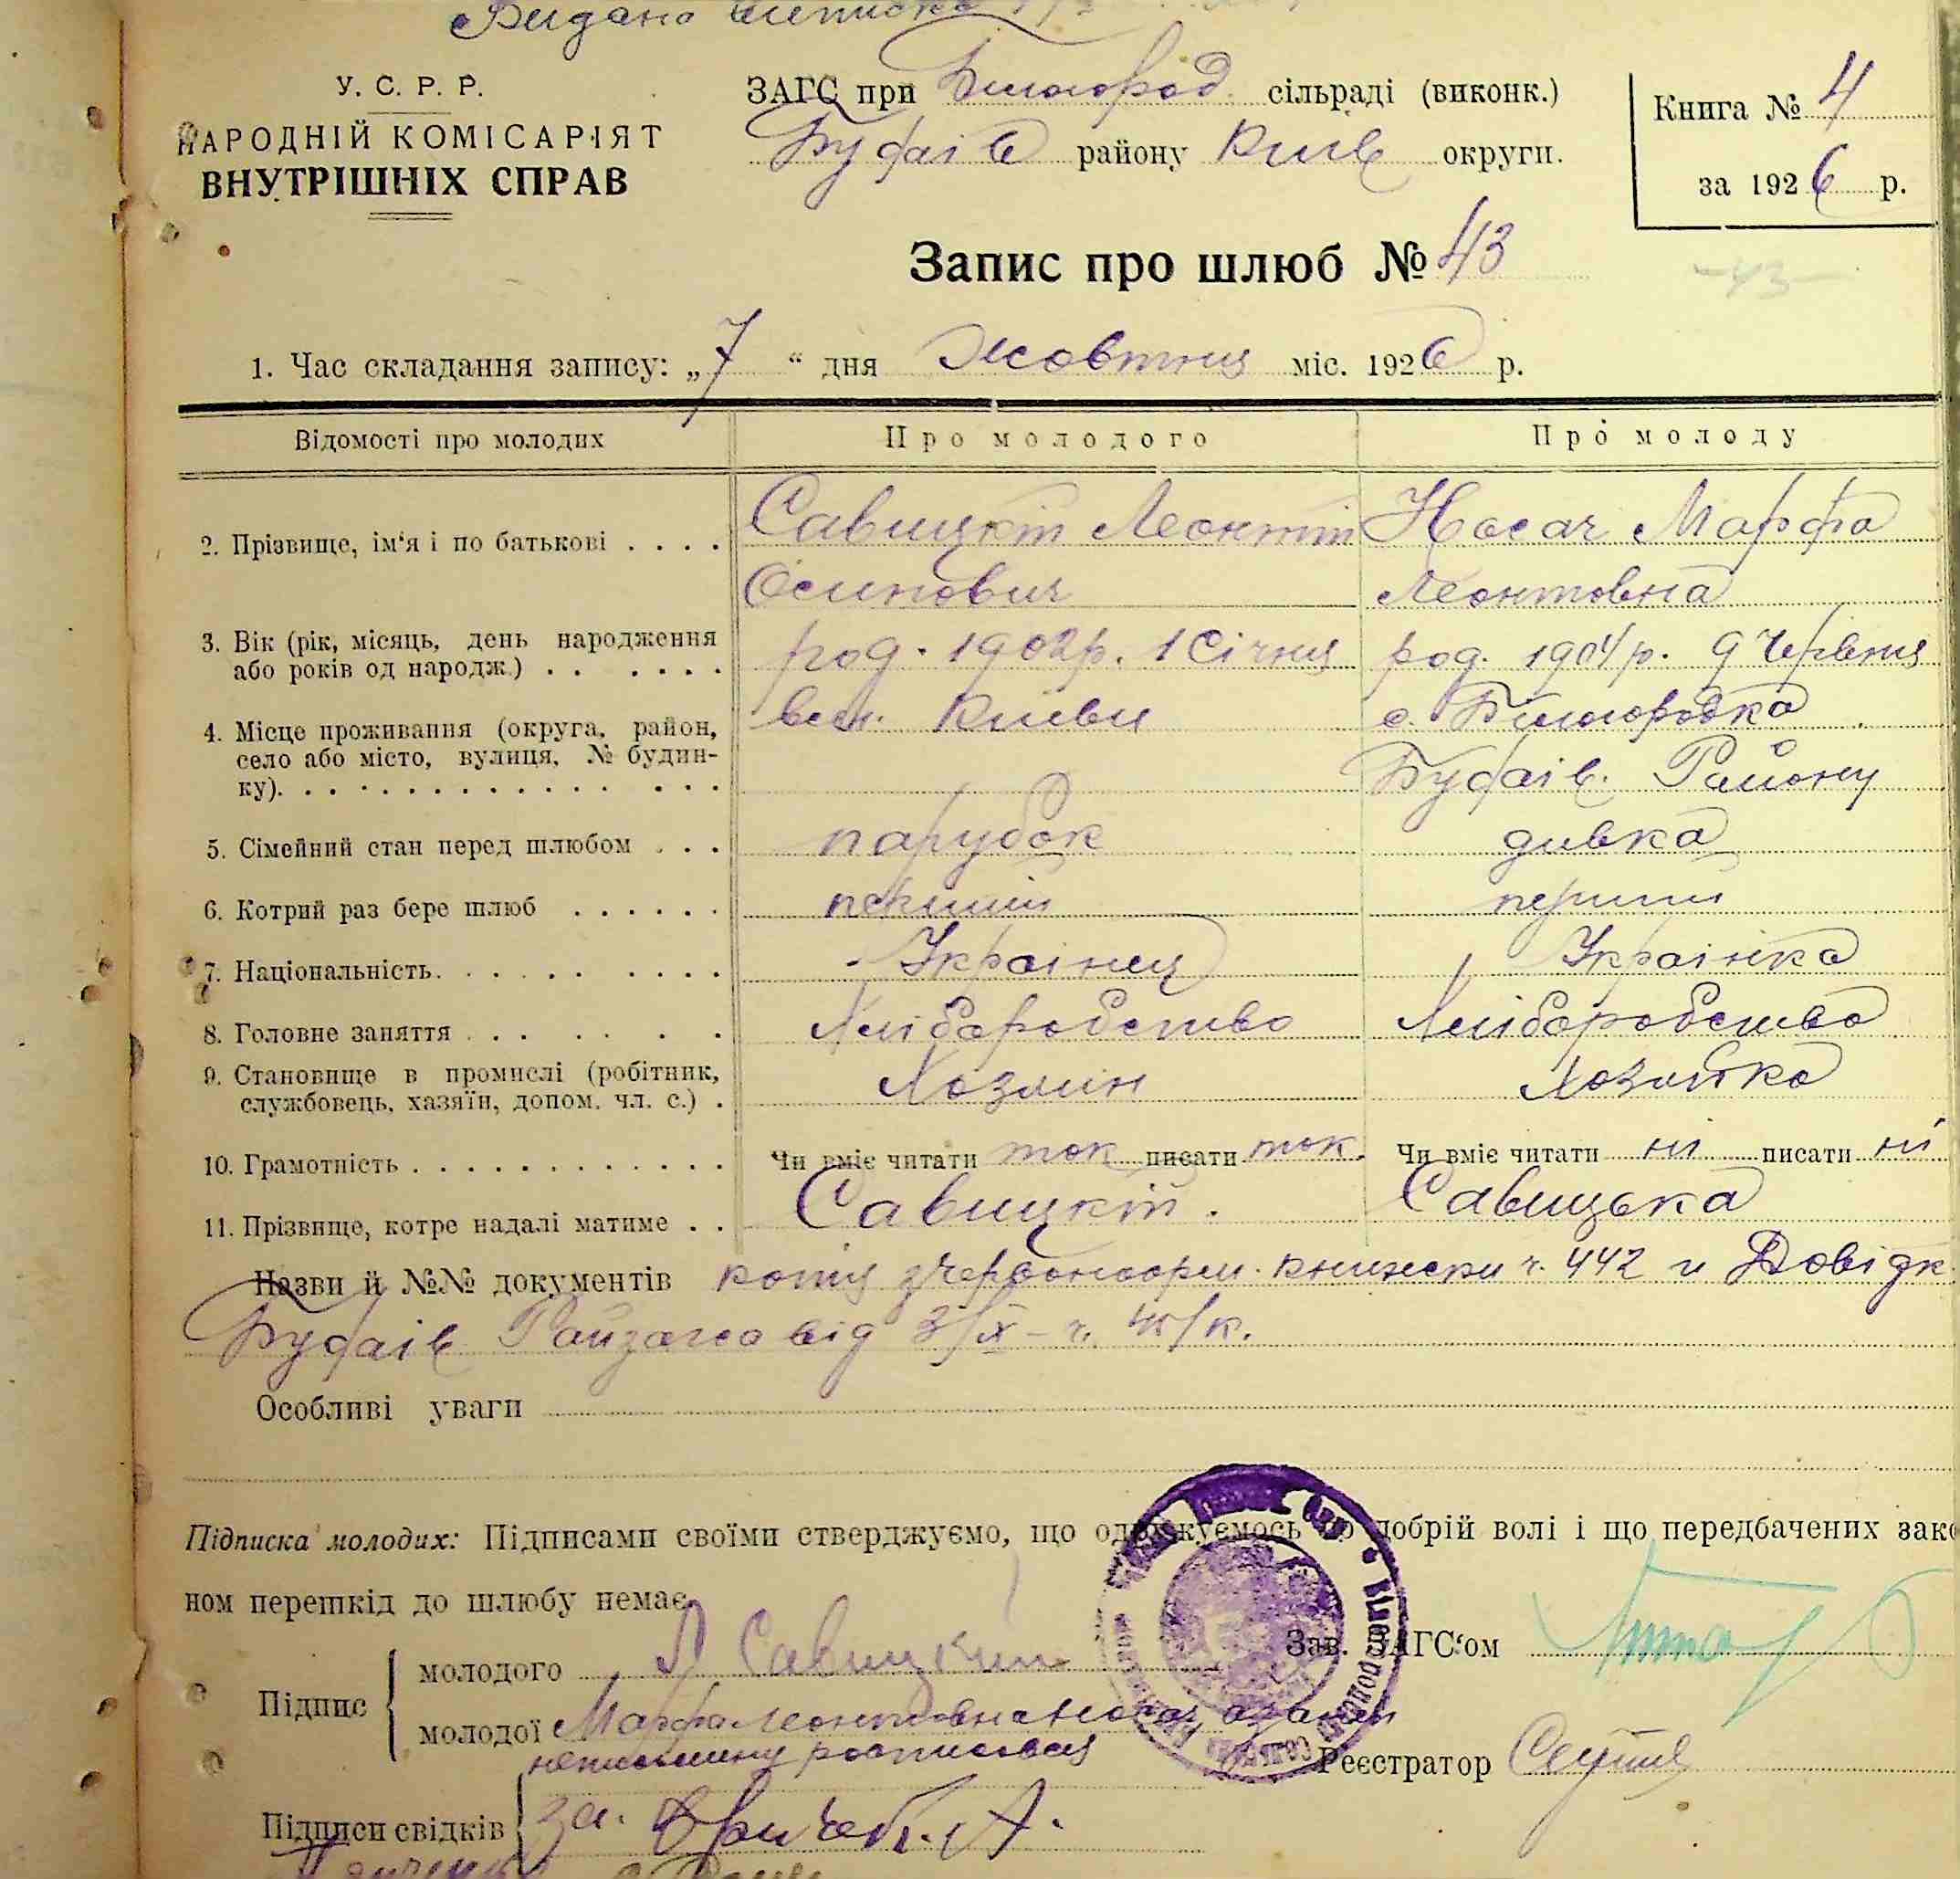 Видано виписка
У. С. Р. Р.
НАРОДНІЙ КОМІСАРІЯТ
ВНУТРІШНІХ СПРАВ
ЗАГС при Білогород. сільраді (виконк.)
Будаїв району Київ округи.
Книга № 4
за 1926 р.
Запис про шлюб № 43
-43-
1. Час складання запису: „7“ дня Жовтня міс. 1926 р.
Відомості про молодих Про молодого Про молоду
2. Прізвище, ім‘я і по батькові . . . . Савицкій Леонтій Носач Марфа
Осипович Леонтовна
3. Вік (рік, місяць, день народження або років од народж.) . . . . . . род. 1902р. 1 Січня род. 1904р. 9 Червня
4. Місце проживання (округа, район, село або місто, вулиця, № будинку). . . . . . . . . . . . . . . . Київи с. Білогородка
Будаів. Району
5. Сімейний стан перед шлюбом . . . парубок дивка
6. Котрий раз бере шлюб . . . . . . перший перший
7. Національність. . . . . . . . . . Українец Українка
8. Головне заняття . . . . . . . Хліборобство Хліборобство
9. Становище в промислі (робітник, службовець, хазяїн, допом. чл. с.) . Хозяин Хозяйка
10. Грамотність . . . . . . . . . . . . . Чи вміє читати так писати так. Чи вміє читати ні писати ні
11. Прізвище, котре надалі матиме . . Савицкій. Савицька
Назви й №№ документів копія з Червоноарм. книжки ч. 442 и Довідк.
Будаів Райзагса від 3/X - ч.
Особливі уваги
Підписка молодих: Підписами своїми стверджуємо, що одружуємось по добрій волі і що передбачених зако
ном перешкід до шлюбу немає
Підпис молодого Л Савицкий
молодої Марфа Леонтовна Носач а за неи
неписьмену росписався
Зав. ЗАГС‘ом
Реєстратор
Підписи свідків за.